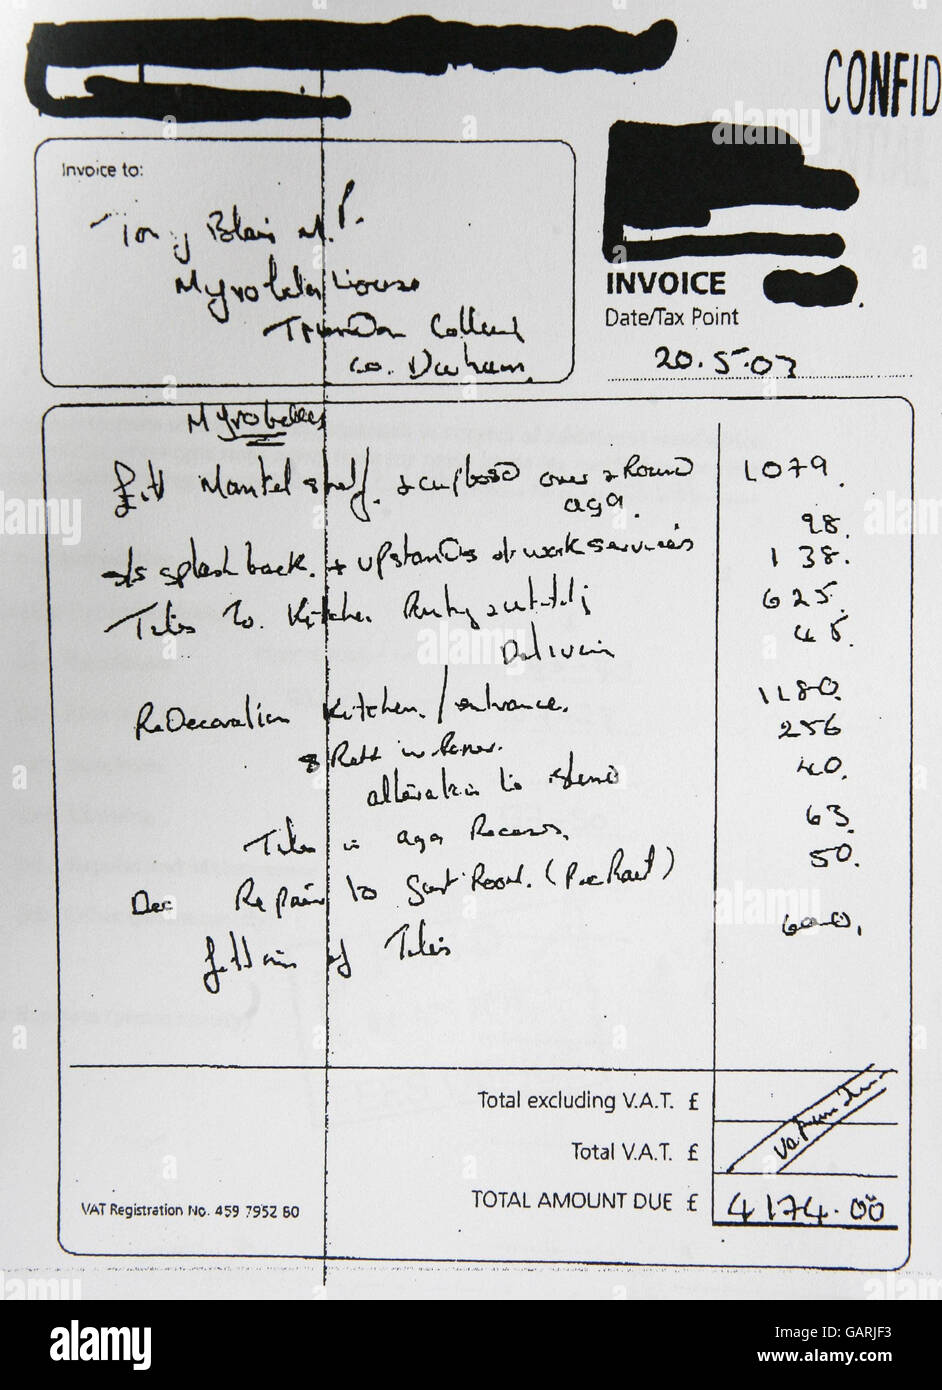 CONFID
Invoice to:
Tony Blair M.P.
Myrobella House
Trimdon Colliery
Co. Durham
INVOICE
Date/Tax Point
20.5.03
Myrobella
fitt Mantel shelf. & cupboard over & Round 1079.
aga.
98.
s/s splash back. & upstands to work services 138.
Tiles to. Kitchen 625.
45.
ReDecoration Kitchen. / entrance. 1180.
256
alteration to 40.
Tiles in aga Recess. 63.
Dec Repair to Room. 50.
fitting of Tiles 600.
Total excluding V.A.T. £
Total V.A.T. £
VAT Registration No. 459 7952 60
TOTAL AMOUNT DUE £ 4174.00
alamy
Image ID: GARJF3
www.alamy.com